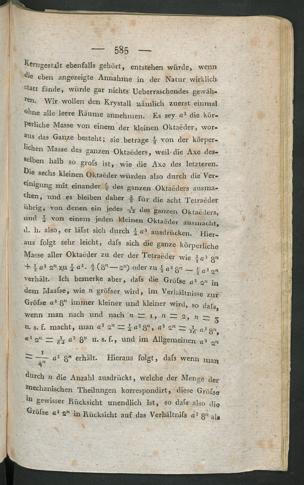 — 585 —
Kerngestalt ebenfalls gehört, entstehen würde, wenn
die eben angezeigte Annahme in der Natur wirklich
statt fände, würde gar nichts Ueberraschendes gewäh-
ren. Wir wollen den Krystall nämlich zuerst einmal
ohne alle leere Räume annehmen. Es sey a³ die kör-
perliche Masse von einem der kleinen Oktaëder, wor-
aus das Ganze besteht; sie betrage ⅛ von der körper-
lichen Masse des ganzen Oktaëders, weil die Axe des-
selben halb so groſs ist, wie die Axe des letzteren.
Die sechs kleinen Oktaëder würden also durch die Ver-
einigung mit einander des ganzen Oktaëders ausma-
chen, und es bleiben daher für die acht Tetraëder
übrig, von denen ein jedes des ganzen Oktaëders,
und ¼ von einem jeden kleinen Oktaëder ausmacht,
d. h. also, er läſst sich durch ¼ a³ ausdrücken. Hier-
aus folgt sehr leicht, daſs sich die ganze körperliche
Masse aller Oktaëder zu der der Tetraëder wie a³ 8ⁿ
+ a³ 2ⁿ zu ¼ a³. (8ⁿ — 2ⁿ) oder zu a³ 8ⁿ — a³ 2ⁿ
verhält. Ich bemerke aber, daſs die Gröſse a³ 2ⁿ in
dem Maaſse, wie n gröſser wird, im Verhältnisse zur
Gröſse a³ 8ⁿ immer kleiner und kleiner wird, so daſs,
wenn man nach und nach n = 1, n = 2, n = 3
u. s. f. macht, man a³ 2ⁿ = ¼ a³ 8ⁿ, a³ 2ⁿ = 1/16 a³ 8ⁿ,
a³ 2ⁿ = 1/64 a³ 8ⁿ u. s. f., und im Allgemeinen a³ 2ⁿ
= 1/4ⁿ a³ 8ⁿ erhält. Hieraus folgt, daſs wenn man
durch n die Anzahl ausdrückt, welche der Menge der
mechanischen Theilungen korrespondirt, diese Gröſse
in gewisser Rücksicht unendlich ist, so daſs also die
Gröſse a³ 2ⁿ in Rücksicht auf das Verhältniſs a³ 8ⁿ als